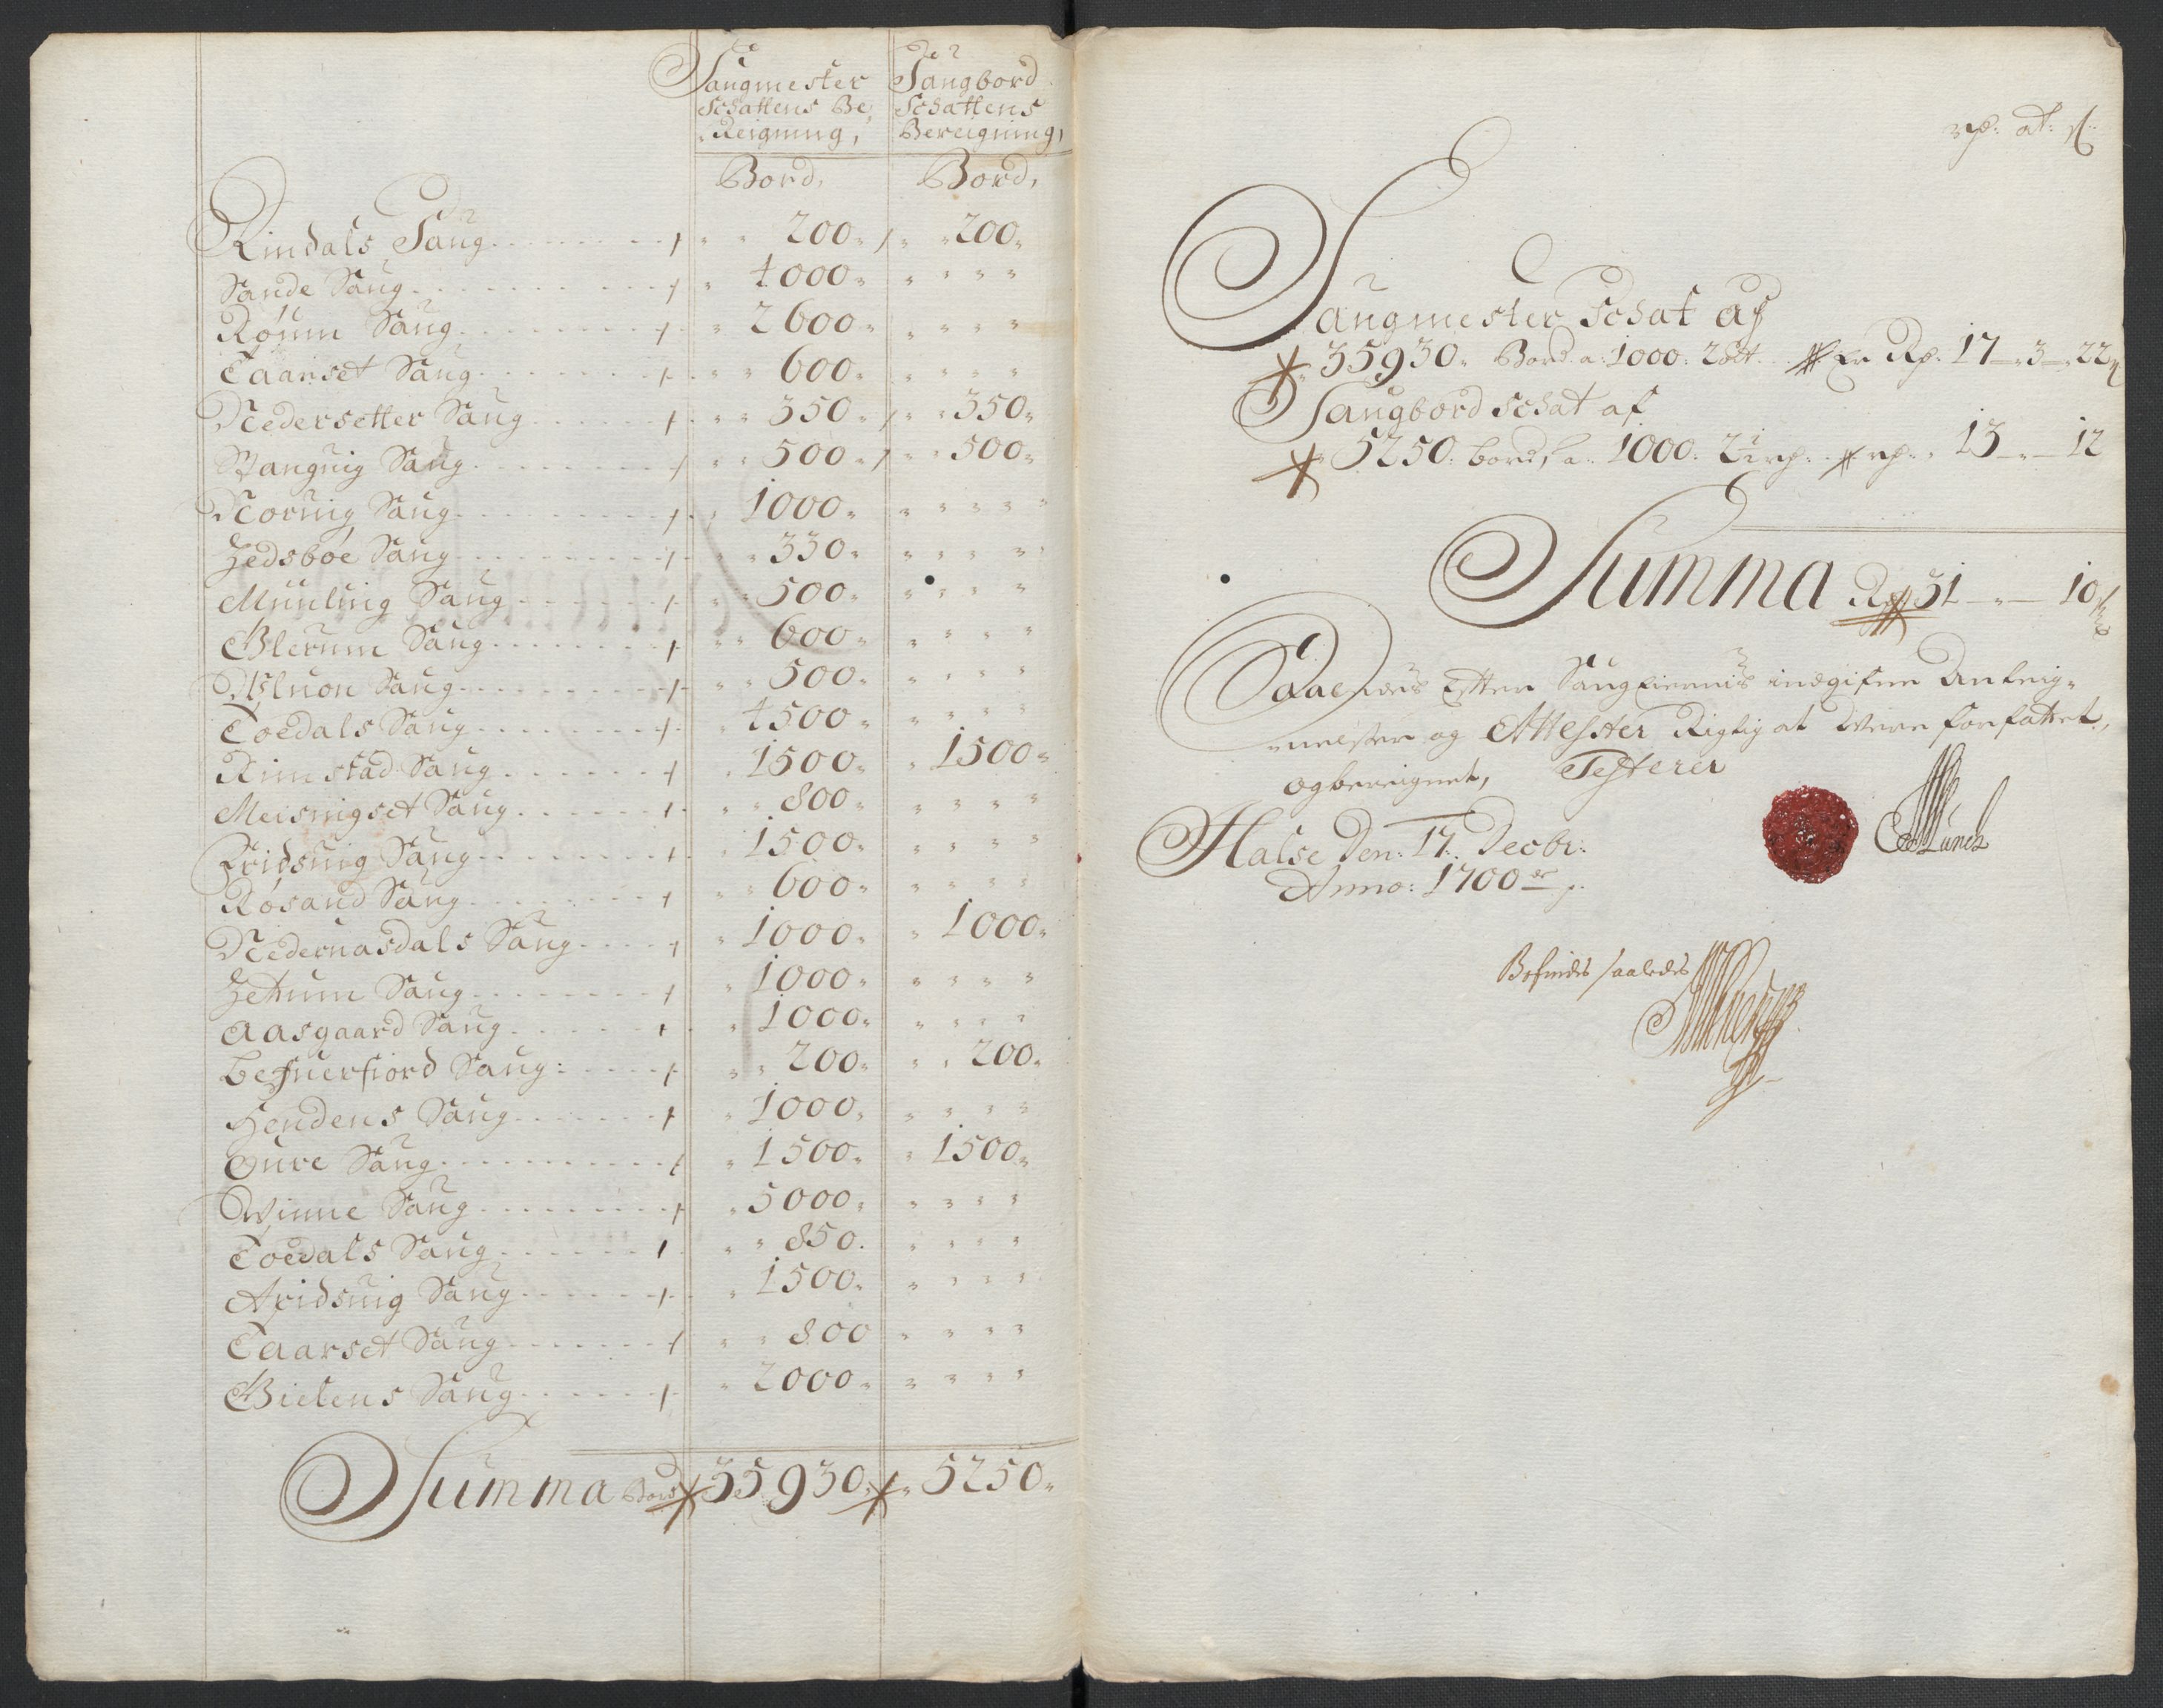 Saugmester Schattens Be-
Reigning,
Saugbord Schattens
Bereigning,
Bord, Bord,
Rindals Saug 200 200
Sande Saug 4000
Roum Saug 2600
Taarset Saug 600
Nedersetter Saug 350 350
Wanguig Saug 500 500
Noruig Saug 1000
Hedsboe Saug 330
Munluig Saug 500
Blerum Saug 600
Aluon Saug 500
Toedals Saug 4500
Rimstad Saug 1500 1500
Meisnigset Saug 800
Fridsuig Saug 1500
Rosand Saug 600
Nedernasdals Saug 1000 1000
Hettum Saug 1000
Aasgaard Saug 1000
Lefuerfiord Saug: 200 200
Hendens Saug 1000
Oure Saug 1500 1500
Winne Saug 5000
Toedals Saug 850
Aridsuig Saug 1500
Taarset Saug 800
Bielens Saug 2000
Summa Bord 35930 5250
rd: ort: s:
Saugmester Schat af
35930 Bord a: 1000: 2 ort. Er Rd. 17 - 3 - 22
Saugbord schat af
5250: bord, a: 1000: 2½ rd: rd: 13 - 12
Summa Rd 31 - 10
Saaledes Efter Saugeiernis indgifne Anteig-
nelser og Attester Rigtig at Were forfattet,
og bereignet, Testerer
Halse Den: 17: Decbr:
Anno: 1700
Munch
Befindes saaledes